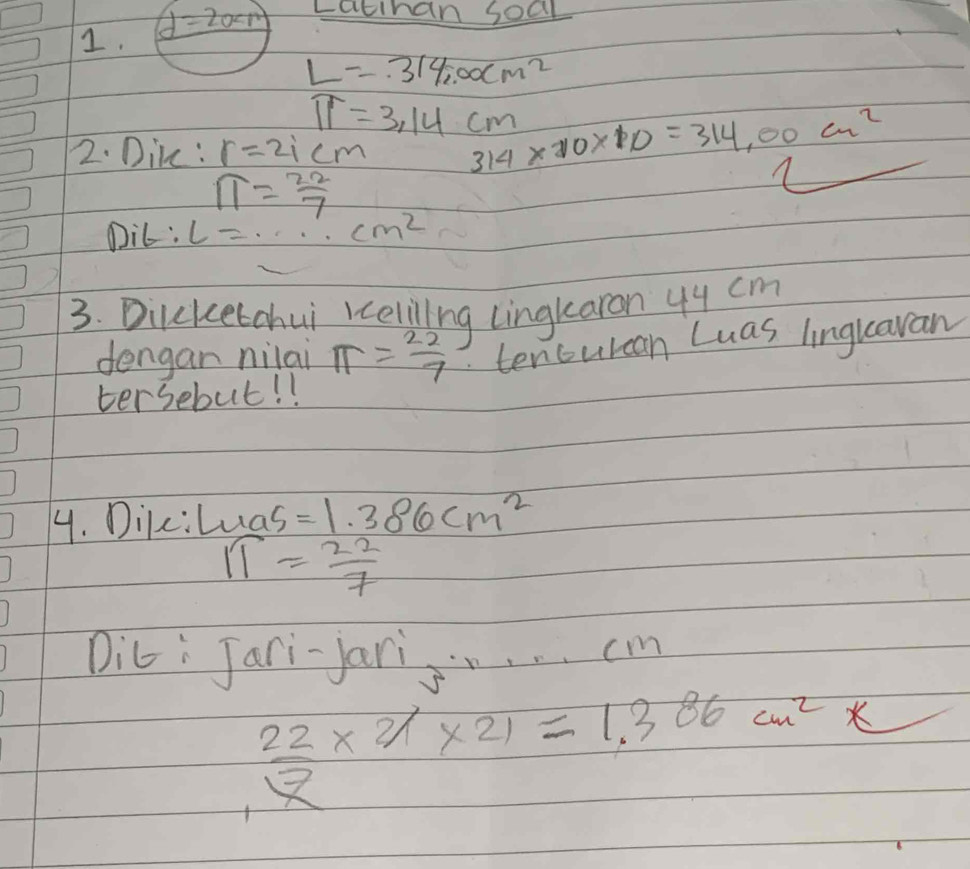 Latihan soal
1. d=20cm
L=314,00cm²
π=3,14 cm
314×10×10=314,00 cm²
2. Dik: r=21 cm
π=22/7
Dit: L=.... cm²
3. Dikketahui Keliling lingkaran 44 cm
dengan nilai π=22/7. tentukan Luas lingkaran
tersebut!!
4. Dik: Luas=1.386cm²
π=22/7
Dit: Jari-jari ..... cm
22/7 × 21 × 21 = 1.386 cm²